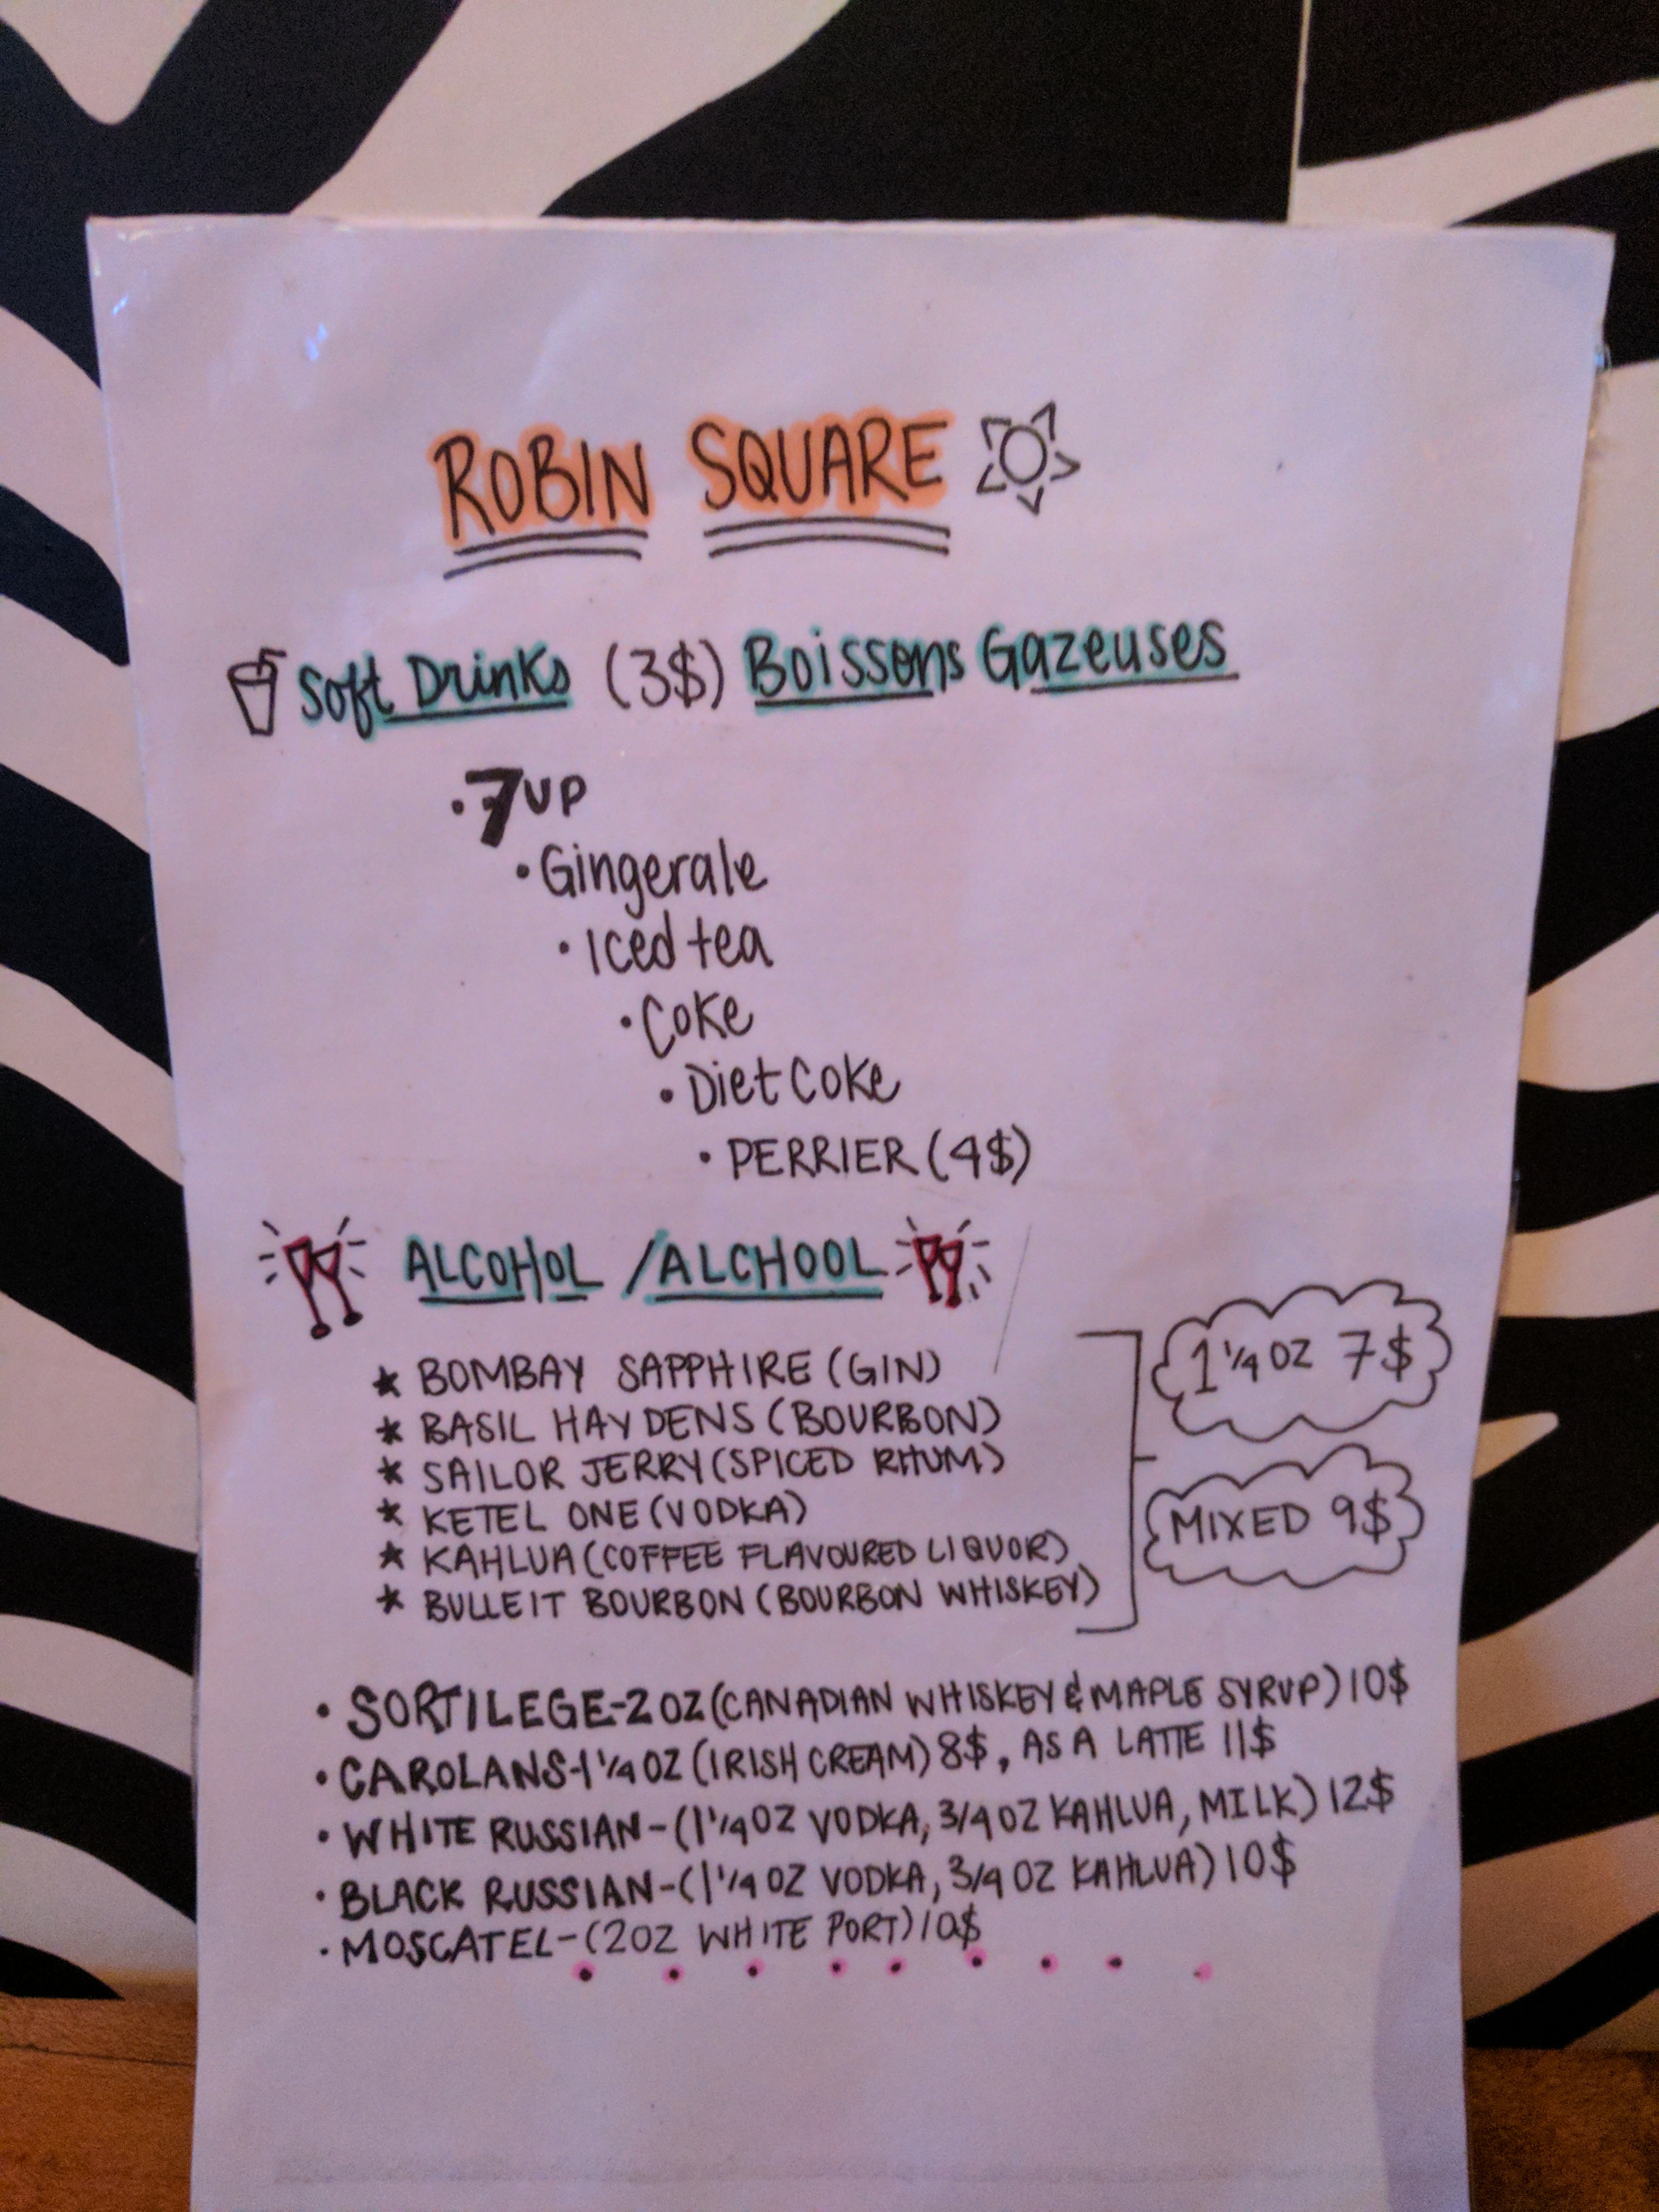 ROBIN SQUARE
Soft Drinks (3$) Boissons Gazeuses
• 7UP
• Gingerale
• Iced tea
• Coke
• Diet Coke
• PERRIER (4$)
ALCOHOL / ALCHOOL
* BOMBAY SAPPHIRE (GIN)
* BASIL HAYDENS (BOURBON)
* SAILOR JERRY (SPICED RHUM)
* KETEL ONE (VODKA)
* KAHLUA (COFFEE FLAVOURED LIQUOR)
* BULLEIT BOURBON (BOURBON WHISKEY)
1 1/4 OZ 7$
MIXED 9$
• SORTILEGE-2 OZ (CANADIAN WHISKEY & MAPLE SYRUP) 10$
• CAROLANS-1 1/4 OZ (IRISH CREAM) 8$, AS A LATTE 11$
• WHITE RUSSIAN-(1 1/4 OZ VODKA, 3/4 OZ KAHLUA, MILK) 12$
• BLACK RUSSIAN-(1 1/4 OZ VODKA, 3/4 OZ KAHLUA) 10$
• MOSCATEL-(2OZ WHITE PORT) 10$